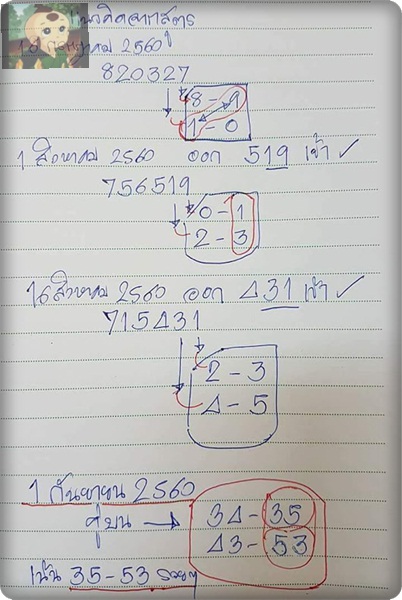 แนวคิดจากสูตร
16 กรกฎาคม 2560
820327
8-9
1-0
1 สิงหาคม 2560 ออก 519 เข้า ✓
756519
0-1
2-3
16 สิงหาคม 2560 ออก 431 เข้า ✓
715431
2-3
4-5
1 กันยายน 2560
คู่บน → 34-35
43-53
เน้น 35-53